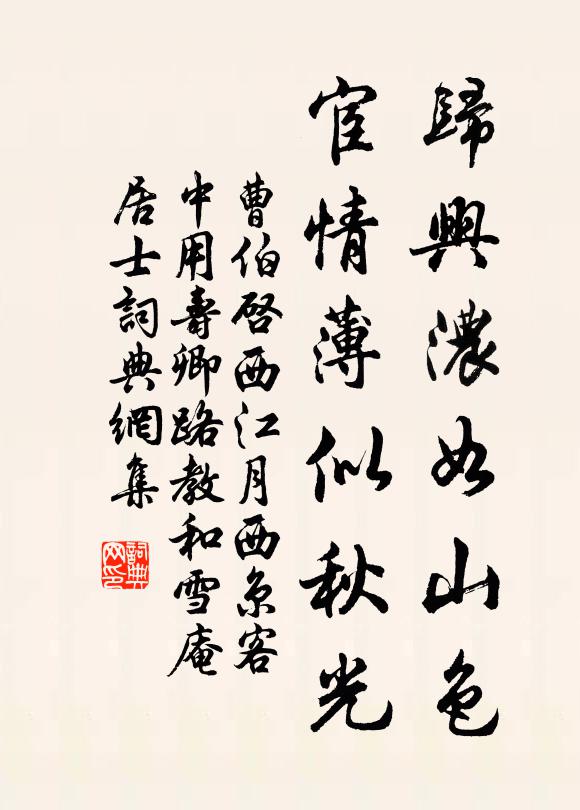 歸興濃如山色
宦情薄似秋光
曹伯啓西江月西京客
中用壽卿路教和雪庵
居士詞典網集
詞典网印